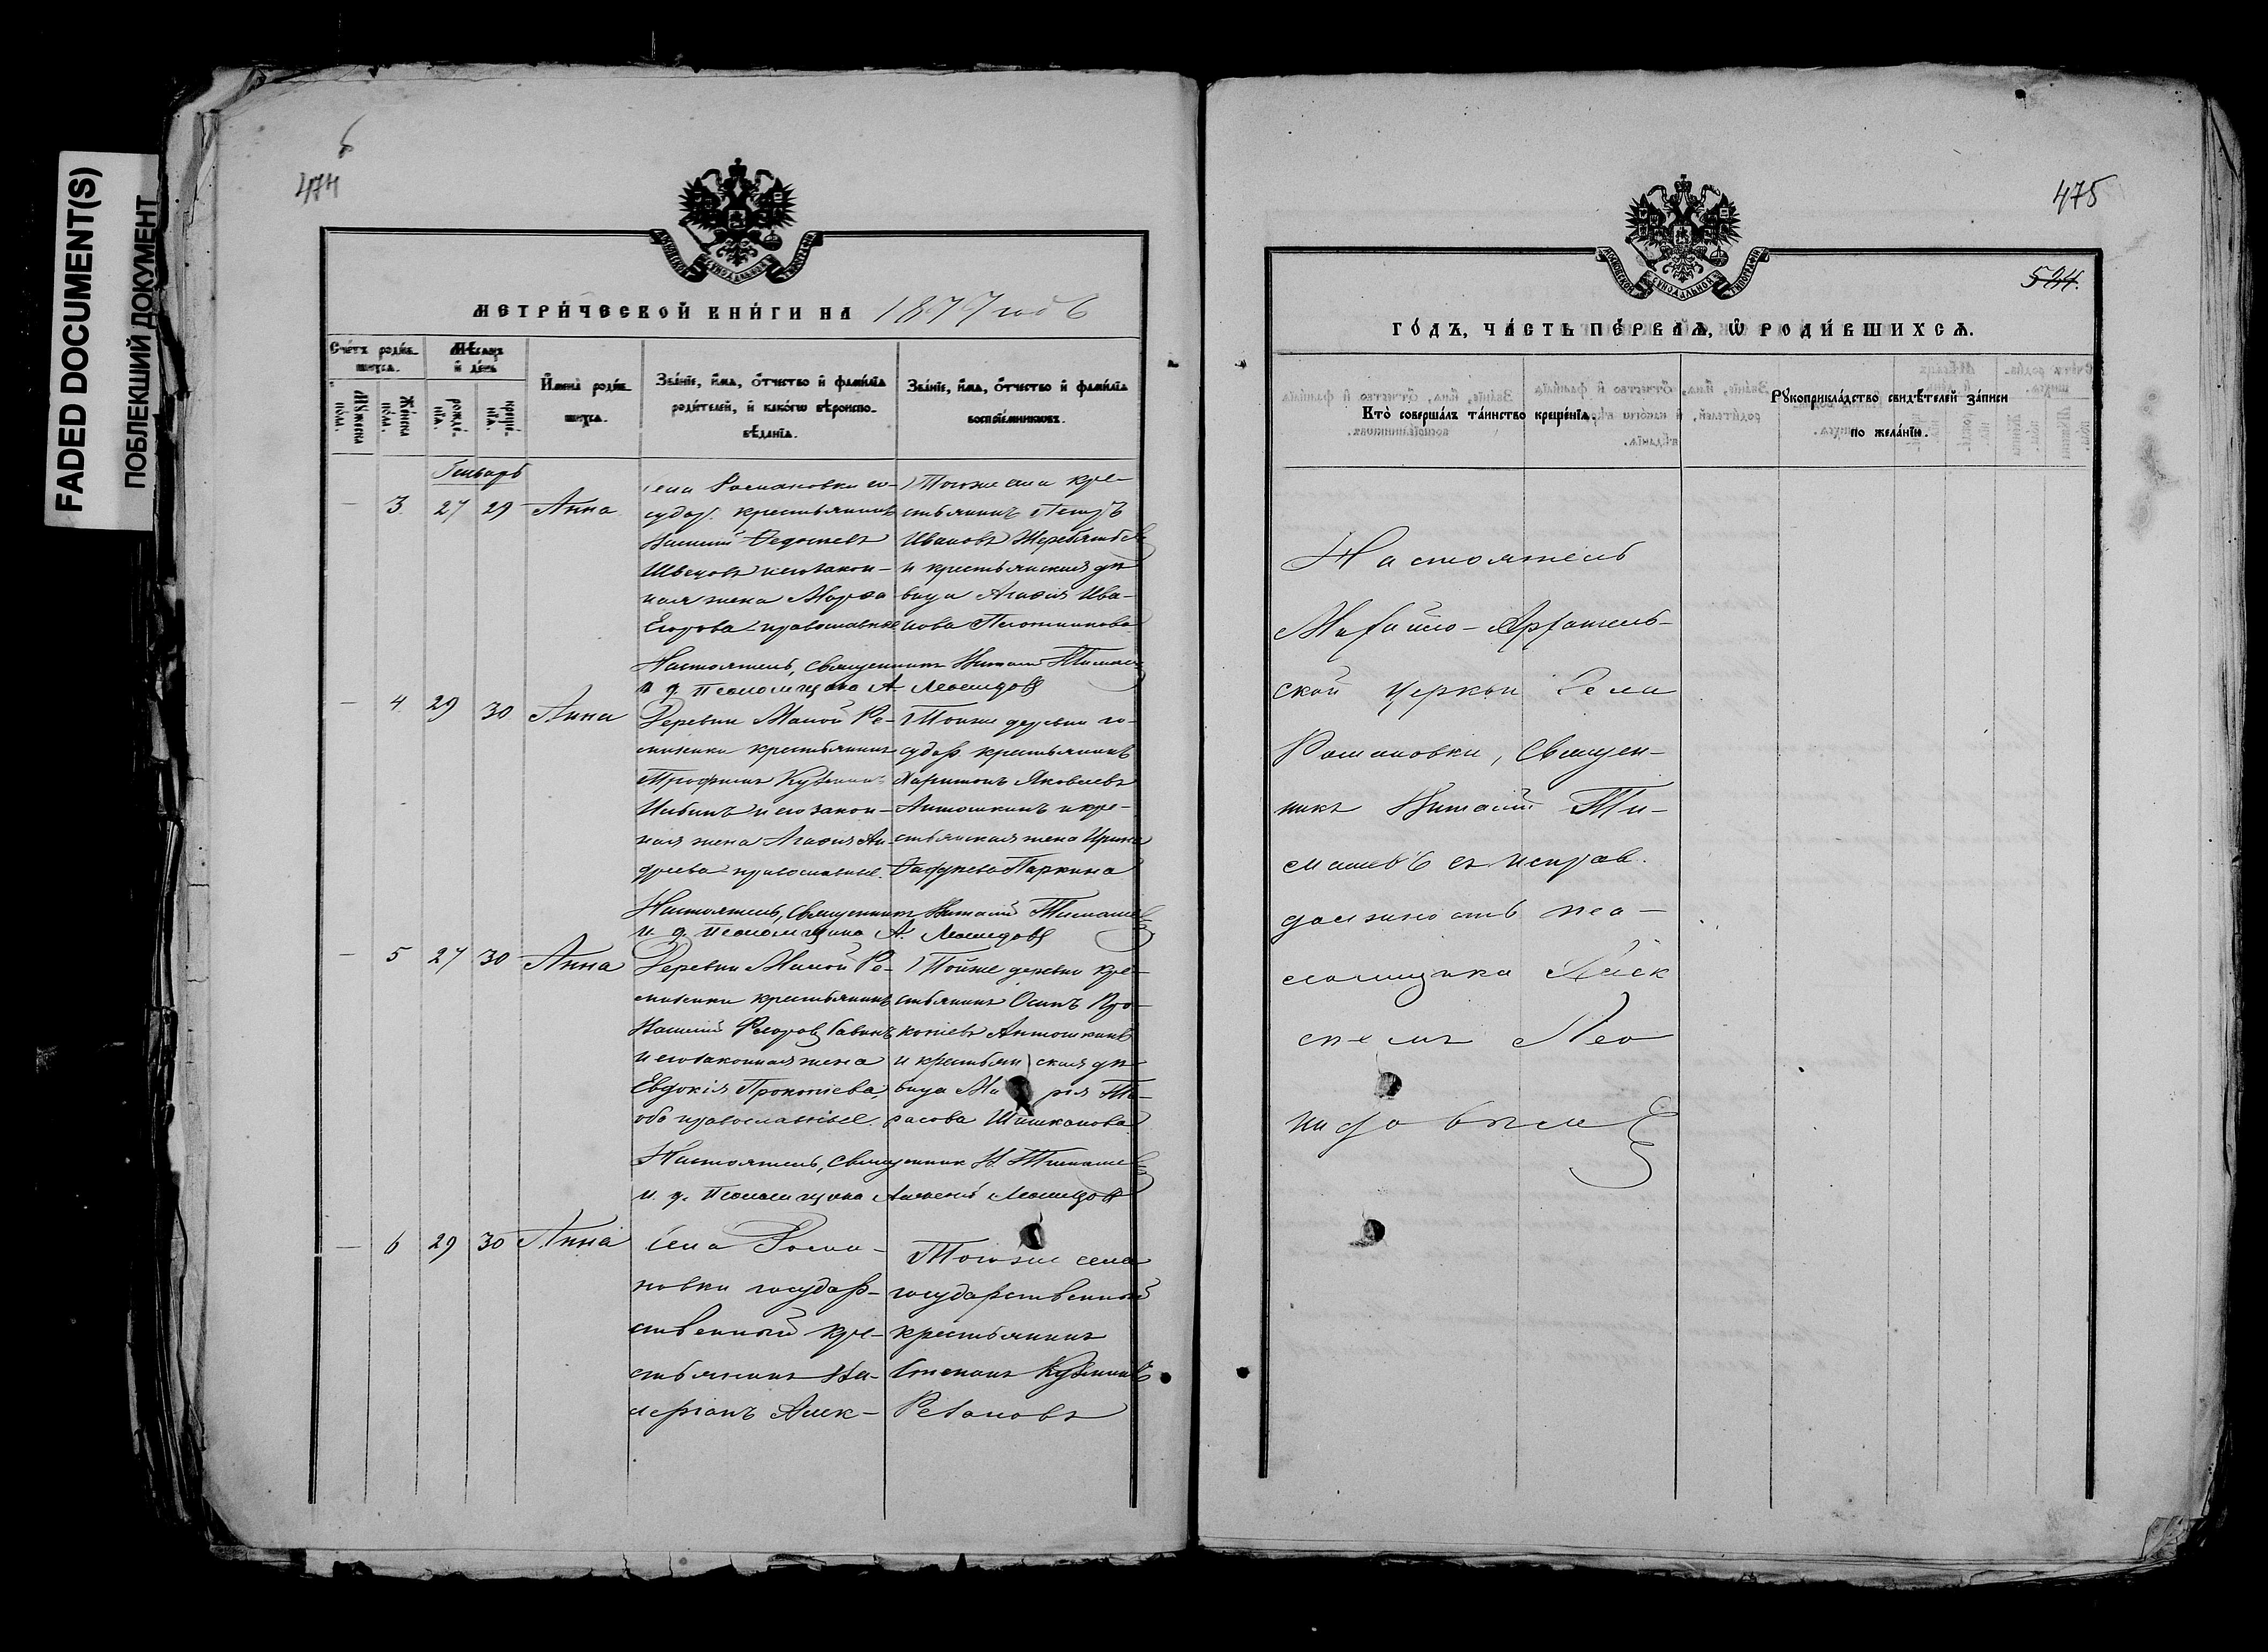 FADED DOCUMENT(S)
ПОБЛЕКШИЙ ДОКУМЕНТ
6
474
МЕТРИ́ЧЕСКОЙ КНИ́ГИ НА 1877 годъ
Счетъ роди́вшихсѧ.
Мѣсѧцъ и҆ де́нь
Мꙋжеска по́ла.
Же́нска по́ла.
рожде́нїѧ.
креще́нїѧ.
И҆мена̀ роди́вшихсѧ.
Зва́нїе, и҆́мѧ, ѻ҆́тчество и҆ фами́лїѧ
роди́телей, и҆ како́гѡ вѣроисповѣ́данїѧ.
Зва́нїе, и҆́мѧ, ѻ҆́тчество и҆ фами́лїѧ
воспрїе́мникѡвъ.
Генварь
— 3 27 29 Анна
Села Романовки го-
судар. крестьянинъ
Василій Федотьевъ
Швецовъ и его закон-
ная жена Марѳа
Егорова православные
Тогоже села кре-
стьянинъ Петръ
Ивановъ Жеребятьевъ
и крестьянская дѣ
вица Агаѳія Ива-
нова Плотникова
Настоятель, Священникъ Виталій Тимашевъ
и. д. Псаломщика А. Леонидовъ
— 4 29 30 Анна
Деревни Малой Ре-
мизенки крестьянинъ
Трофимъ Кузминъ
Ильинъ и его закон-
ная жена Агаѳія Ан-
дреева православные.
Тойже деревни го-
судар. крестьянинъ
Харитонъ Яковлевъ
Антошкинъ и кре-
стьянская жена Ирина
Фаддеева Паркина
Настоятель, Священникъ Виталій Тимашевъ
и. д. Псаломщика А. Леонидовъ
— 5 27 30 Анна
Деревни Малой Ре-
мизенки крестьянинъ
Василій Федоровъ Савинъ
и его законная жена
Евдокія Прокопіева,
оба православные.
Тойже деревни кре-
стьянинъ Осипъ Про-
копіевъ Антошкинъ
и крестьянская дѣ
вица Марія Та-
расова Шашканова
Настоятель, Священник В. Тимашевъ
и. д. Псаломщика Алексѣй Леонидовъ
— 6 29 30 Анна
Села Рома-
новки государ-
ственный кре-
стьянинъ Ва-
леріанъ Алек-
Тогоже села
государственный
крестьянинъ
Степанъ Кузминъ
Резановъ
475
524.
ГО́ДЪ, ЧА́СТЬ ПЕ́РВАѦ, Ѽ РОДИ́ВШИХСѦ.
Кто̀ соверша́лъ та́инство креще́нїѧ.
Рꙋкоприкла́дство свидѣ́телей за́писи
по жела́нїю.
Настоятель
Михайло-Архангель-
ской церкви Села
Романовки, Священ-
никъ Виталій Ти-
машевъ съ исправ.
должность пса-
ломщика Алек
сѣемъ Лео
нидовымъ